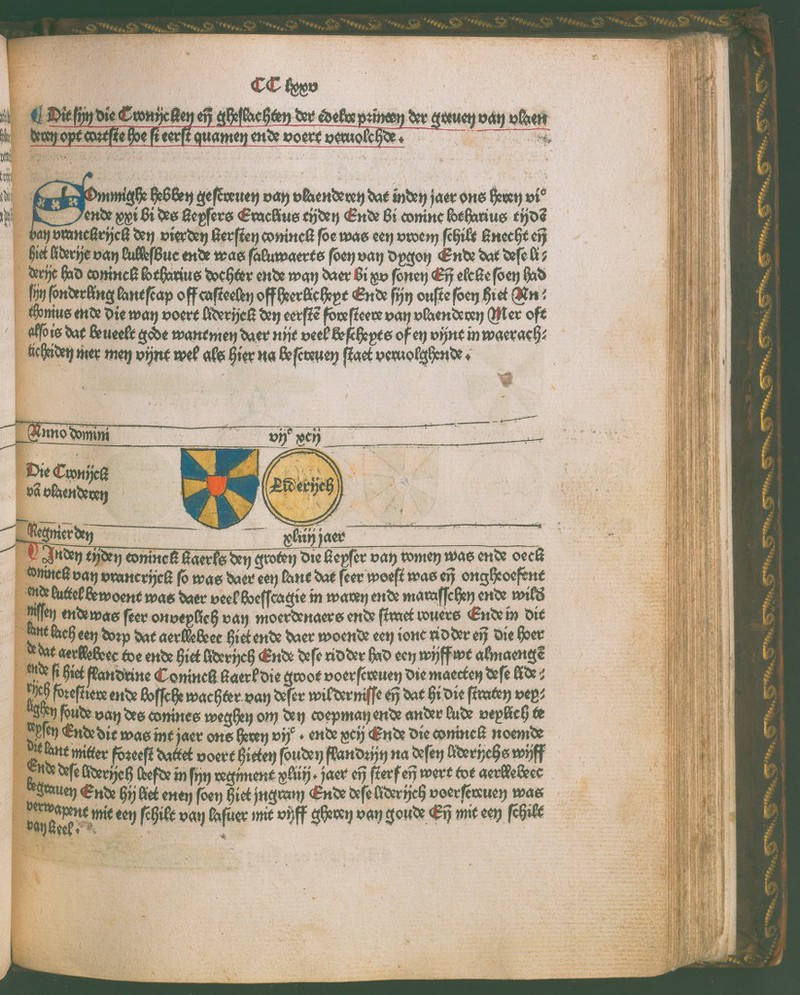 CC lxxv
Dit sijn die Cronijcken eñ gheslachten der edelre princen der greuen van vlaen
deren opt cortste hoe si eerst quamen ende voert veruolchde.
Sommighe hebben gescreuen van vlaenderen dat inden jaer ons heren viᶜ
ende xxi bi des keysers Eraclius tijden Ende bi coninc lotharius tijdē
van vranckrijck den vierden kersten coninck soe was een vroem schilt knecht eñ
hiet liderije van lullesbuc ende was saluwaerts soen van dygon Ende dat dese li⸗
derije had coninck lotharius dochter ende wan daer bi xv sonen Eñ elcke soen had
sijn sonderling lantscap off casteelen off heerlicheyt Ende sijn outste soen hiet An⸗
thonius ende die wan voert liderijck den eerstē foresteere van vlaenderen Mer oft
also is dat beueelt gode want men daer nijt veel bescheyts of en vijnt in waerach⸗
ticheiden mer men vijnt wel als hier na bescreuen staet veruolghende.
Anno domini vijᶜ xcij
Die Cronijck
vā vlaenderen
Liderijch
Regnierden xliiij jaer
Inden tijden coninck kaerls den groten die keyser van romen was ende oeck
coninck van vrancrijck so was daer een lant dat seer woest was eñ ongheoefent
ende luttel bewoent was daer veel boesscagie in waren ende marasschen ende wild
nissen ende was seer onveylich van moerdenaers ende straet rouers Ende in dit
lant lach een dorp dat aerlkebeec hiet ende daer woende een ionc ridder eñ die hoer
de dat aerlkebeec toe ende hiet liderijch Ende dese ridder had een wijff wt almaengē
ende si hiet flandrine Coninck kaerl die groot voerscreuen die maecten dese lide⸗
rijch forestiere ende bossche wachter van deser wildernisse eñ dat hi die straten vey⸗
lighen soude van des conincs weghen om den coepman ende ander lude veylich te
reysen Ende dit was int jaer ons heren vijᶜ. ende xcij Ende die coninck noemde
dit lant mitter foreest dattet voert hieten souden flandrijn na desen liderijchs wijff
Ende dese liderijch leefde in sijn regiment xliiij. jaer eñ sterf eñ wert tot aerlkebeec
begrauen Ende hij liet enen soen hiet jngram Ende dese liderijch voerscreuen was
verwapent mit een schilt van lasuer mit vijff gheren van goude Eñ mit een schilt
van keel.